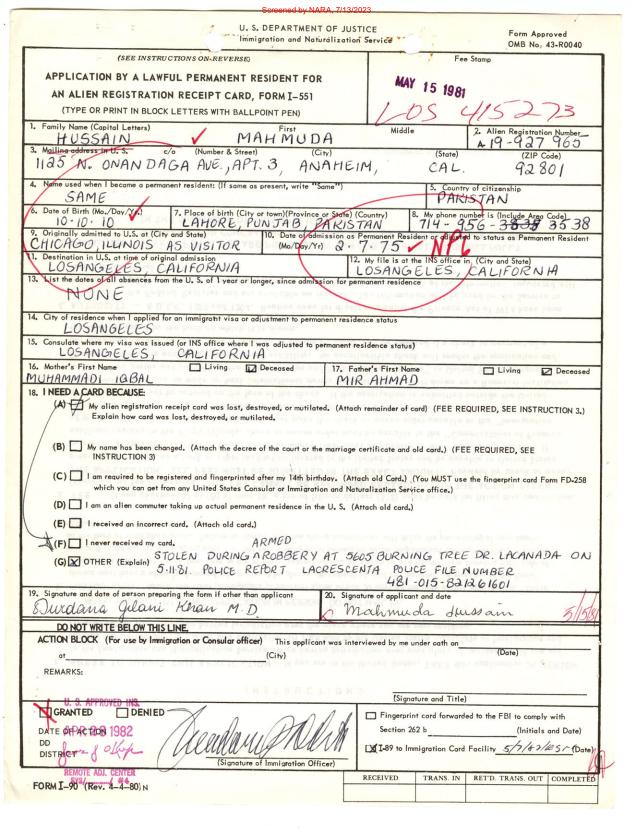 Screened by NARA, 7/13/2023
U. S. DEPARTMENT OF JUSTICE
Immigration and Naturalization Service
Form Approved
OMB No. 43-R0040
(SEE INSTRUCTIONS ON-REVERSE)
Fee Stamp
APPLICATION BY A LAWFUL PERMANENT RESIDENT FOR
AN ALIEN REGISTRATION RECEIPT CARD, FORM I-551
(TYPE OR PRINT IN BLOCK LETTERS WITH BALLPOINT PEN)
MAY 15 1981
LOS 415273
1. Family Name (Capital Letters) First Middle 2. Alien Registration Number
HUSSAIN MAHMUDA A 19-927 965
3. Mailing address in U. S. c/o (Number & Street) (City) (State) (ZIP Code)
1125 N. ONANDAGA AVE., APT. 3, ANAHEIM, CAL. 92801
4. Name used when I became a permanent resident: (If same as present, write "Same") 5. Country of citizenship
SAME PAKISTAN
6. Date of Birth (Mo./Day/Yr.) 7. Place of birth (City or town)(Province or State) (Country) 8. My phone number is (Include Area Code)
10-10-10 LAHORE, PUNJAB, PAKISTAN 714-956-3838 3538
9. Originally admitted to U.S. at (City and State) 10. Date of Admission as Permanent Resident or adjusted to status as Permanent Resident
CHICAGO, ILLINOIS AS VISITOR (Mo/Day/Yr) 2-7-75 NP6
11. Destination in U.S. at time of original admission 12. My file is at the INS office in, (City and State)
LOSANGELES, CALIFORNIA LOSANGELES, CALIFORNIA
13. List the dates of all absences from the U. S. of 1 year or longer, since admission for permanent residence
NONE
14. City of residence when I applied for an immigrant visa or adjustment to permanent residence status
LOSANGELES
15. Consulate where my visa was issued (or INS office where I was adjusted to permanent residence status)
LOSANGELES, CALIFORNIA
16. Mother's First Name Living Deceased 17. Father's First Name Living Deceased
MUHAMMADI IQBAL MIR AHMAD
18. I NEED A CARD BECAUSE:
(A) My alien registration receipt card was lost, destroyed, or mutilated. (Attach remainder of card) (FEE REQUIRED, SEE INSTRUCTION 3.)
Explain how card was lost, destroyed, or mutilated.
(B) My name has been changed. (Attach the decree of the court or the marriage certificate and old card.) (FEE REQUIRED, SEE
INSTRUCTION 3)
(C) I am required to be registered and fingerprinted after my 14th birthday. (Attach old Card.) (You MUST use the fingerprint card Form FD-258
which you can get from any United States Consular or Immigration and Naturalization Service office.)
(D) I am an alien commuter taking up actual permanent residence in the U. S. (Attach old card.)
(E) I received an incorrect card. (Attach old card.)
(F) I never received my card. ARMED
(G) X OTHER (Explain) STOLEN DURING A ROBBERY AT 5605 BURNING TREE DR. LACANADA ON
5-11-81. POLICE REPORT LACRESCENTA POLICE FILE NUMBER
481-015-821261601
19. Signature and date of person preparing the form if other than applicant 20. Signature of applicant and date
Durdana Gilani Khan M.D Mahmuda Hussain 5/15/81
DO NOT WRITE BELOW THIS LINE.
ACTION BLOCK (For use by Immigration or Consular officer) This applicant was interviewed by me under oath on
at (City) (Date)
REMARKS:
(Signature and Title)
U. S. APPROVED INS.
GRANTED DENIED
DATE OF ACTION APR 1982
DD
DISTRICT
REMOTE ADJ. CENTER
(Signature of Immigration Officer)
Fingerprint card forwarded to the FBI to comply with
Section 262 b (Initials and Date)
I-89 to Immigration Card Facility (Date)
RECEIVED TRANS. IN RET'D. TRANS. OUT COMPLETED
FORM I-90 (Rev. 4-4-80) N